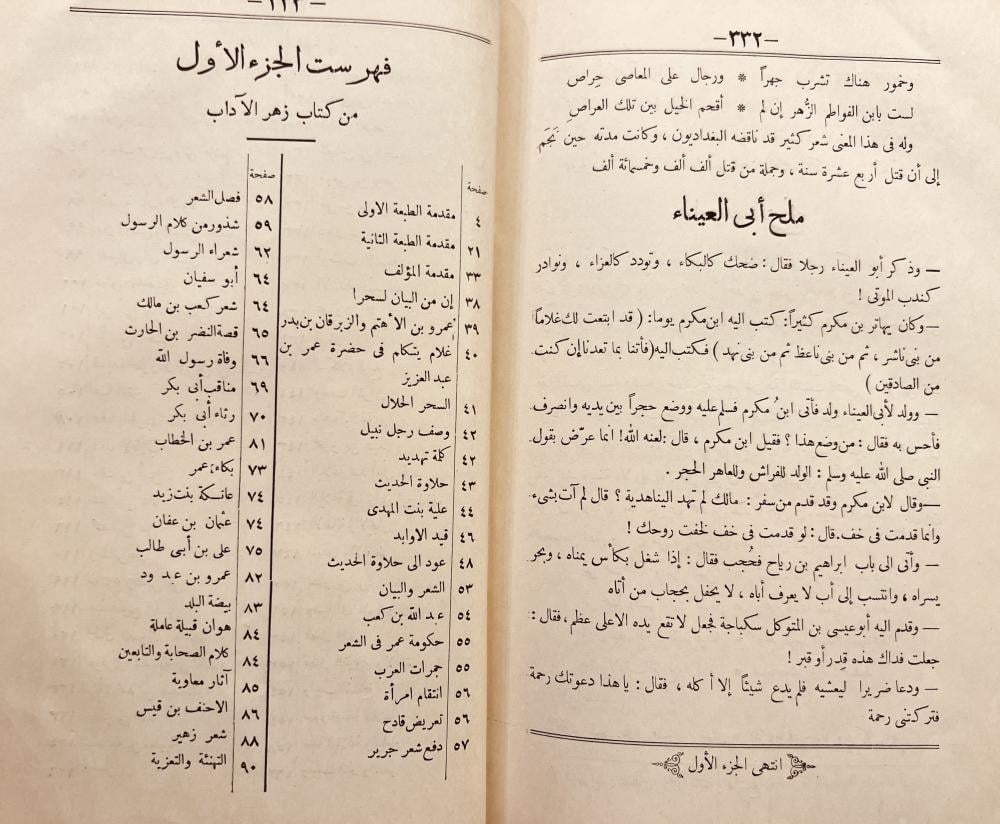 —٣٣٢—
وخمور هناك تشرب جهراً * ورجال على المعاصى حِراص
لست بابن الفواطم الزُّهر إن لم * أقحم الخيل بين تلك العراصِ
وله فى هذا المعنى شعر كثير قد ناقضه البغداديون ، وكانت مدته حين نَجَم
إلى أن قتل أربع عشرة سنة ، وجملة من قتل ألف ألف وخمسمائة ألف
ملح أبى العيناء
— وذكر أبو العيناء رجلا فقال : ضحك كالبكاء ، وتودد كالعزاء ، ونوادر
كندب الموتى !
— وكان يهاتر بن مكرم كثيراً: كتب اليه ابن مكرم يوما: ( قد ابتعت لك غلاماً
من بنى ناشر ، ثم من بنى ناعظ ثم من بنى نهد ) فكتب اليه (فأتنا بما تعدنا إن كنت
من الصادقين )
— وولد لأبى العيناء ولد فأتى ابنُ مكرم فسلم عليه ووضع حجراً بين يديه وانصرف
فأحس به فقال : من وضع هذا ؟ فقيل ابن مكرم ، قال : لعنه الله! انما عرّض بقول
النبى صلى الله عليه وسلم : الولد للفراش وللعاهر الحجر .
— وقال لابن مكرم وقد قدم من سفر : مالك لم تهد الينا هدية ؟ قال لم آت بشىء
وانما قدمت فى خف. قال : لو قدمت فى خف لخفت روحك !
— وأتى الى باب ابراهيم بن رياح فحُجب فقال : إذا شغل بكأس يمناه ، وبحر
يسراه ، وانتسب إلى أب لا يعرف أباه ، لا يحفل بحجاب من أتاه
— وقدم اليه أبو عيسى بن المتوكل سكباجة فجعل لا تقع يده الا على عظم ، فقال :
جعلت فداك هذه قِدر أو قبر !
— ودعا ضريرا ليعشيه فلم يدع شيئاً إلا أكله ، فقال : يا هذا دعوتك رحمة
فتركتنى رحمة
انتهى الجزء الأول
فهرست الجزء الأول
من كتاب زهر الآداب
صفحة
٤ مقدمة الطبعة الاولى
٢١ مقدمة الطبعة الثانية
٣٣ مقدمة المؤلف
٣٨ إن من البيان لسحرا
٣٩ عمرو بن الأهتم والزبرقان بن بدر
٤٠ غلام يتكلم فى حضرة عمر بن
عبد العزيز
٤١ السحر الحلال
٤٢ وصف رجل نبيل
٤٢ كلمة تهديد
٤٣ حلاوة الحديث
٤٤ علية بنت المهدى
٤٦ قيد الاوابد
٤٨ عود الى حلاوة الحديث
٥٣ الشعر والبيان
٥٤ عبد الله بن كعب
٥٥ حكومة عمر فى الشعر
٥٥ جمرات العرب
٥٦ انتقام امرأة
٥٦ تعريض قادح
٥٧ دفع شعر جرير
صفحة
٥٨ فصل الشعر
٥٩ شذور من كلام الرسول
٦٢ شعراء الرسول
٦٤ أبو سفيان
٦٤ شعر كعب بن مالك
٦٥ قصة النضر بن الحارث
٦٦ وفاة رسول الله
٦٩ مناقب أبى بكر
٧٠ رثاء أبى بكر
٨١ عمر بن الخطاب
٧٣ بكاء عمر
٧٤ عاتكة بنت زيد
٧٤ عثمان بن عفان
٧٥ على بن أبى طالب
٨٢ عمرو بن عبد ود
٨٣ بيضة البلد
٨٤ هوان قبيلة عاملة
٨٤ كلام الصحابة والتابعين
٨٥ آثار معاوية
٨٦ الاحنف بن قيس
٨٨ شعر زهير
٩٠ التهنئة والتعزية